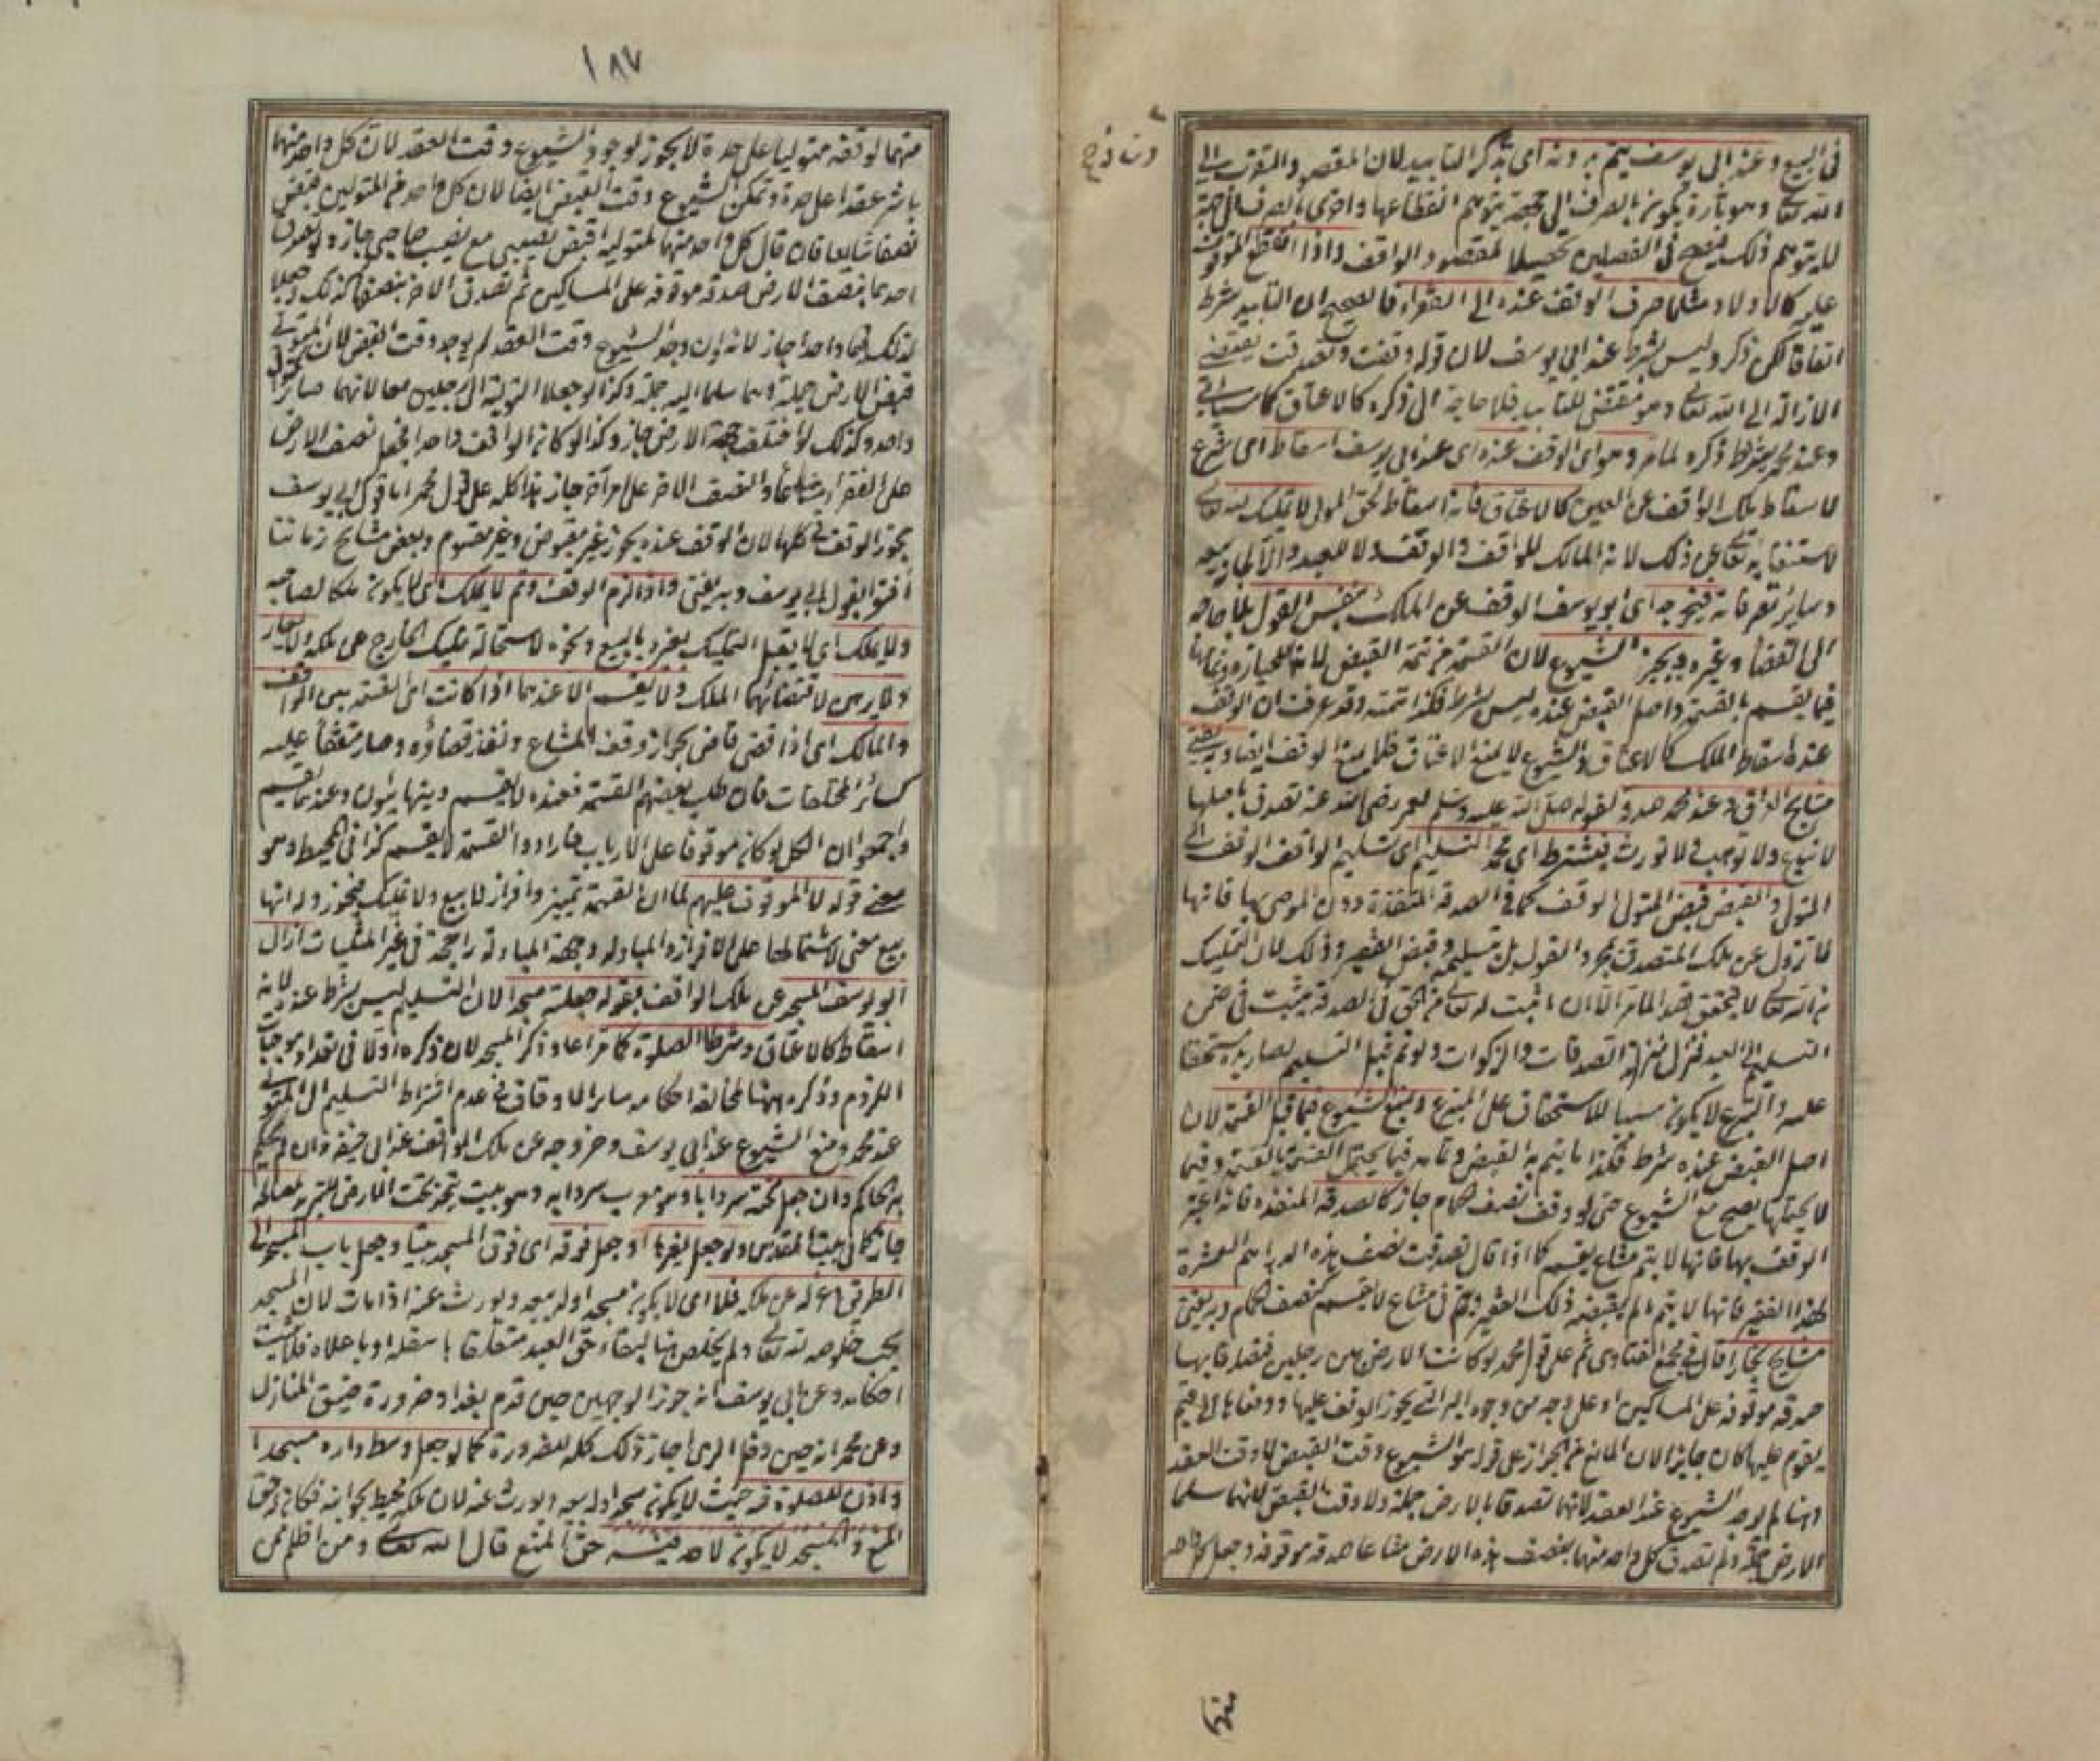 في البيع وعند ابي يوسف يتم بدونه اي بذكر التأبيد لان المقصود التقرب الى
الله تعالى وهو تارة يكون بالصرف الى جهة يتوهم انقطاعها واخرى بالصرف الى جهة
لا يتوهم ذلك فيصح في الفصلين تحصيلا لمقصود الواقف واذا انقطع الموقوف
عليه كالاولاد مثلا صرف الوقف عنده الى الفقراء فالصحيح ان التأبيد شرط
اتفاقا لكن ذكره ليس بشرط عند ابي يوسف لان قوله وقفت وتصدقت يقتضي
الازالة الى الله تعالى وهو مقتضى للتأبيد فلا حاجة الى ذكره كالاعتاق كما سيأتي
وعند محمد يشترط ذكره لما مر وهو اي الوقف عنده اي عند ابي يوسف اسقاط اي شرع
لاسقاط ملك الواقف عن العين كالاعتاق فانه اسقاط لحق المولى لا تمليك لله تعالى
لاستغنائه تعالى عن ذلك لانه المالك للواقف والوقف ولا للعبد والا لجاز بيعه
وسائر تصرفاته فيخرجه اي ابو يوسف الوقف عن الملك بنفس القول بلا حاجة
الى القضاء وغيره ويجيز الشيوع لان القسمة من تتمة القبض لانه للحيازة وتمامها
فيما يقسم بالقسمة واصل القبض عنده ليس بشرط فكذا تتمته وقد عرفت ان الوقف
عنده اسقاط الملك كالاعتاق والشيوع لا يمنع الاعتاق فلا يمنع الوقف ايضا وبه يفتي
مشايخ العراق وعند محمد صدقة لقوله صلى الله عليه وسلم لعمر رضي الله عنه تصدق باصلها
لا تباع ولا توهب ولا تورث فيشترط اي محمد التسليم اي تسليم الواقف الوقف الى
المتولي والقبض قبض المتولي الوقف كما في الصدقة المنفذة دون الموصى بها فانها
لا تزول عن ملك المتصدق بمجرد القول بل بتسليمه وقبض الفقير وذلك لان التمليك
من الله تعالى لا يتحقق قصدا لما مر الا ان اثبت له تعالى من الحق في الصدقة يثبت في ضمن
التسليم الى العبد فنزل منزلة الصدقات والزكوات ولو تم قبل التسليم لصار يده مستحقا
عليه والتبرع لا يكون سببا للاستحقاق على المتبرع ويمنع الشيوع فيما قبل القسمة لان
اصل القبض عنده شرط فكذا ما يتم به القبض وتمامه فيما يحتمل القسمة بالقسمة وفيما
لا يحتملها يصح مع الشيوع حتى لو وقف نصف الحمام جاز كالصدقة المنفذة فانه اعتبر
الوقف بها فانها لا يتم مشاع يقسم كما اذا قال تصدقت نصف هذه الدراهم العشرة
لهذا الفقير فانها لا يتم ما لم يقبضه ذلك الفقير ويتم في مشاع لا يقسم كنصف الحمام وبه يفتي
مشايخ بخارا قال في مجمع الفتاوى ثم على قول محمد لو كانت الارض بين رجلين فتصدقا بها
صدقة موقوفة على المساكين او على وجه من وجوه البر التي يجوز الوقف عليها ودفعاها الى قيم
يقوم عليها كان جايزا لان المانع من الجواز على قوله هو الشيوع وقت القبض لا وقت العقد
وهنا لم يوجد الشيوع عند العقد لانهما تصدقا بالارض جملة ولا وقت القبض لانهما سلما
الارض جملة ولو تصدق كل واحد منهما بنصف هذه الارض مشاعا صدقة موقوفة وجعل كل واحد
١٨٧
منهما لوقفه متوليا على حدة لا يجوز لوجود الشيوع وقت العقد لان كل واحد منهما
باشر عقدا على حدة وتمكن الشيوع وقت القبض ايضا لان كل واحد من المتولين قبض
نصفا شايعا فان قال كل واحد منهما لمتوليه اقبض نصيبي مع نصيب صاحبي جاز ولو تصدق
احدهما بنصف الارض صدقة موقوفة على المساكين ثم تصدق الاخر بنصفها كذلك وجعلا
لذلك قيما واحدا جاز لانه وان وجد الشيوع وقت العقد لم يوجد وقت القبض لان المتولي
قبض الارض جملة وهما سلما اليه جملة وكذا لو جعلا التولية الى رجلين معا لانهما صارا كمتول
واحد وكذلك لو اختلف جهة الارض جاز وكذا لو كان الواقف واحدا فجعل نصف الارض
على الفقراء مشاعا والنصف الاخر على امر آخر جاز هذا كله على قول محمد اما قول ابي يوسف
يجوز الوقف في كلها لان الوقف عنده يجوز غير مقبوض وغير مقسوم وبعض مشايخ زماننا
افتوا بقول ابي يوسف وبه يفتى واذا لزم الوقف وتم لا يملك اي لا يكون ملكا لصاحبه
ولا يملك اي لا يقبل التمليك لغيره بالبيع ونحوه لاستحالة تمليك الخارج عن ملكه ولا يعار
ولا يرهن لاقتضائهما الملك ولا يقسم الا عندهما اذا كانت اي القسمة بين الواقف
والمالك اي اذا قضى قاض بجواز وقف المشاع ونفذ قضاؤه وصار متفقا عليه
كسائر المختلفات فان طلب بعضهم القسمة فعنده لا يقسم ويتهايئون وعندهما يقسم
واجمعوا ان الكل لو كان موقوفا على الارباب فارادوا القسمة لا يقسم كذا في المحيط وهو
معنى قوله لا الموقوف عليهم لما ان القسمة تمييز وافراز لا بيع ولا تمليك فيجوز وله انها
بيع معنى لاشتمالها على الافراز والمبادلة وجهة المبادلة راجحة في غير المثليات ازال
ابو يوسف المسجد عن ملك الواقف بقوله جعلته مسجدا لان التسليم ليس بشرط عنده لانه
اسقاط كالاعتاق وشرطا الصلوة كما مر اعاد ذكر المسجد لان ذكره اولا في تعداد موجبات
اللزوم وذكره ههنا لمخالفة احكامه سائر الاوقاف في عدم اشتراط التسليم الى المتولي
عند محمد ومنع الشيوع عند ابي يوسف وخروجه عن ملك الواقف عند ابي حنيفة وان لم يحكم
به الحاكم وان جعل تحته سردابا وهو معرب سردابه وهو بيت يتخذ تحت الارض للتبريد لمصالحه
جاز كما في بيت المقدس ولو جعل لغيرها او جعل فوقه اي فوق المسجد بيتا وجعل باب المسجد الى
الطريق وعزله عن ملكه فلا اي لا يكون مسجدا وله بيعه ويورث عنه اذا مات لان المسجد
يجب خلوصه لله تعالى ولم يخلص هنا لبقاء حق العبد متعلقا باسفله او باعلاه فلا يثبت
احكامه وعن ابي يوسف انه جوز الوجهين حين قدم بغداد ضرورة ضيق المنازل
وعن محمد انه حين دخل الري اجاز ذلك كله للضرورة كما لو جعل وسط داره مسجدا
واذن للصلوة فيه حيث لا يكون مسجدا وله بيعه ويورث عنه لان ملكه محيط بجوانبه فكان له حق
المنع والمسجد لا يكون لاحد فيه حق المنع قال الله تعالى ومن اظلم ممن